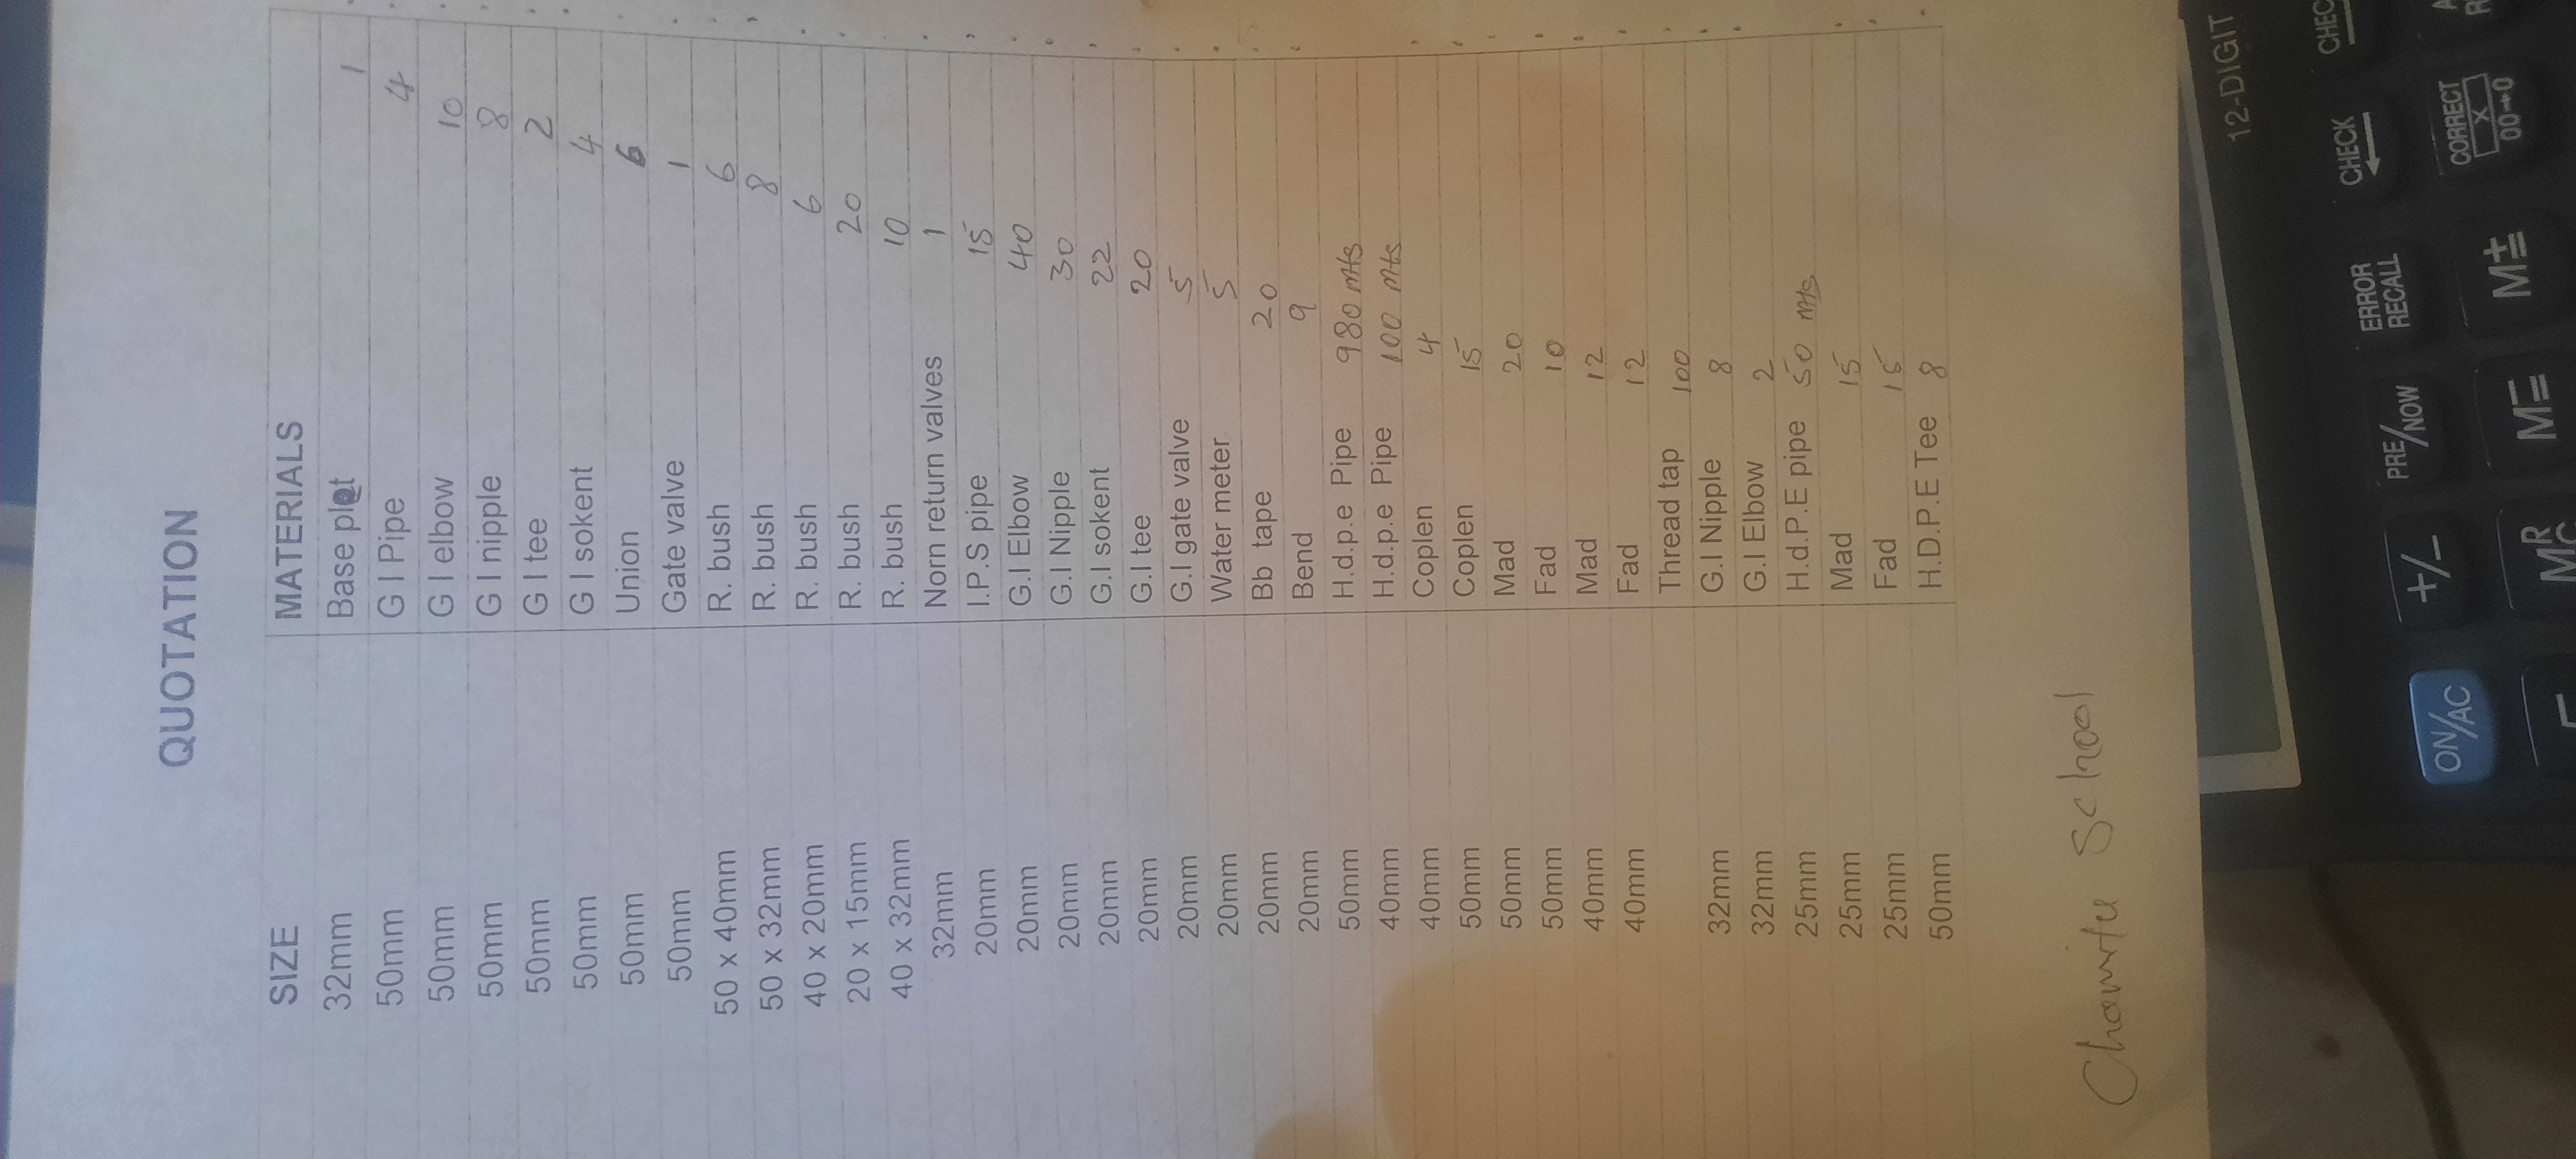 QUOTATION
SIZE MATERIALS
32mm Base plet 1
50mm G I Pipe 4
50mm G I elbow 10
50mm G I nipple 8
50mm G I tee 2
50mm G I sokent 4
50mm Union 6
50mm Gate valve 1
50 x 40mm R. bush 6
50 x 32mm R. bush 8
40 x 20mm R. bush 6
20 x 15mm R. bush 20
40 x 32mm R. bush 10
32mm Norn return valves 1
20mm I.P.S pipe 15
20mm G.I Elbow 40
20mm G.I Nipple 30
20mm G.I sokent 22
20mm G.I tee 20
20mm G.I gate valve 5
20mm Water meter 5
20mm Bb tape 20
20mm Bend 9
50mm H.d.p.e Pipe 980 mts
40mm H.d.p.e Pipe 100 mts
40mm Coplen 4
50mm Coplen 15
50mm Mad 20
50mm Fad 10
40mm Mad 12
40mm Fad 12
Thread tap 100
32mm G.I Nipple 8
32mm G.I Elbow 2
25mm H.d.P.E pipe 50 mts
25mm Mad 15
25mm Fad 15
50mm H.D.P.E Tee 8
School
12-DIGIT
ON/AC +/- PRE/NOW ERROR RECALL CHECK
M= M± CORRECT X 00→0